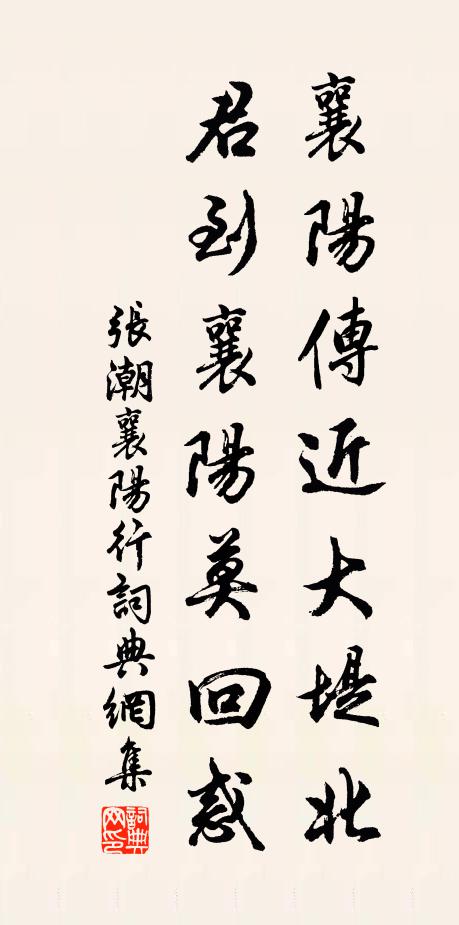 襄陽傳近大堤北
君到襄陽莫回惑
張潮襄陽行詞典網集
詞典網印